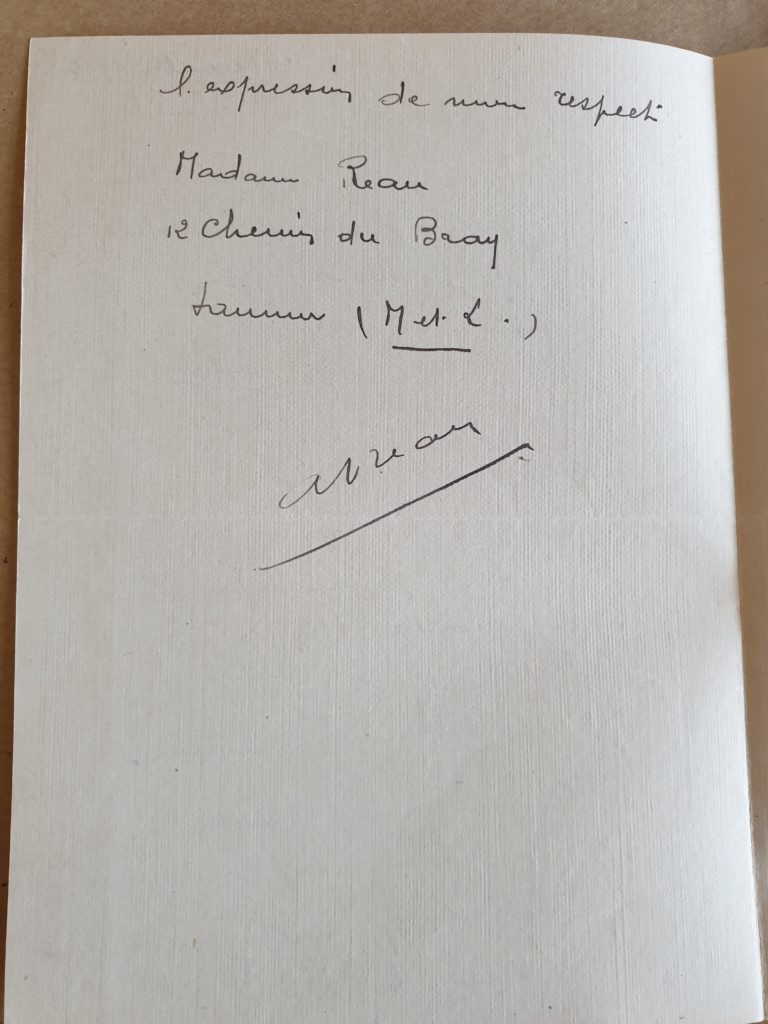 l'expression de mon respect
Madame Reau
12 Chemin du Bray
Saumur (M et L.)
Reau